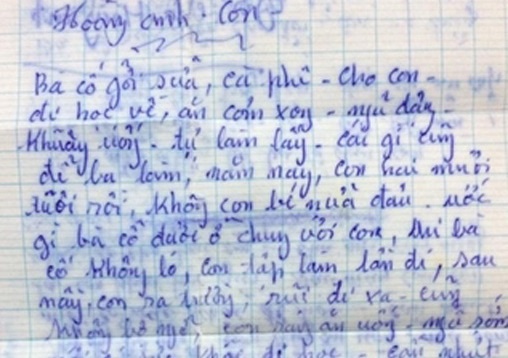 Hoàng anh. Con
Bà cố gởi sữa, cà phê - cho con -
đi học về, ăn cơm xong - ngủ dậy -
Khuấy uống - tự làm lấy - cái gì cũng
để ba làm, năm nay, con hai mươi
tuổi rồi, không con bé nữa đâu. ước
gì bà cố được ở chung với con, thì bà
cố không lo, con tập làm lần đi, sau
này con ra trường, rũi đi xa - cũng
không bỡ ngỡ, con ăn uống - ngủ sớm
đi học -